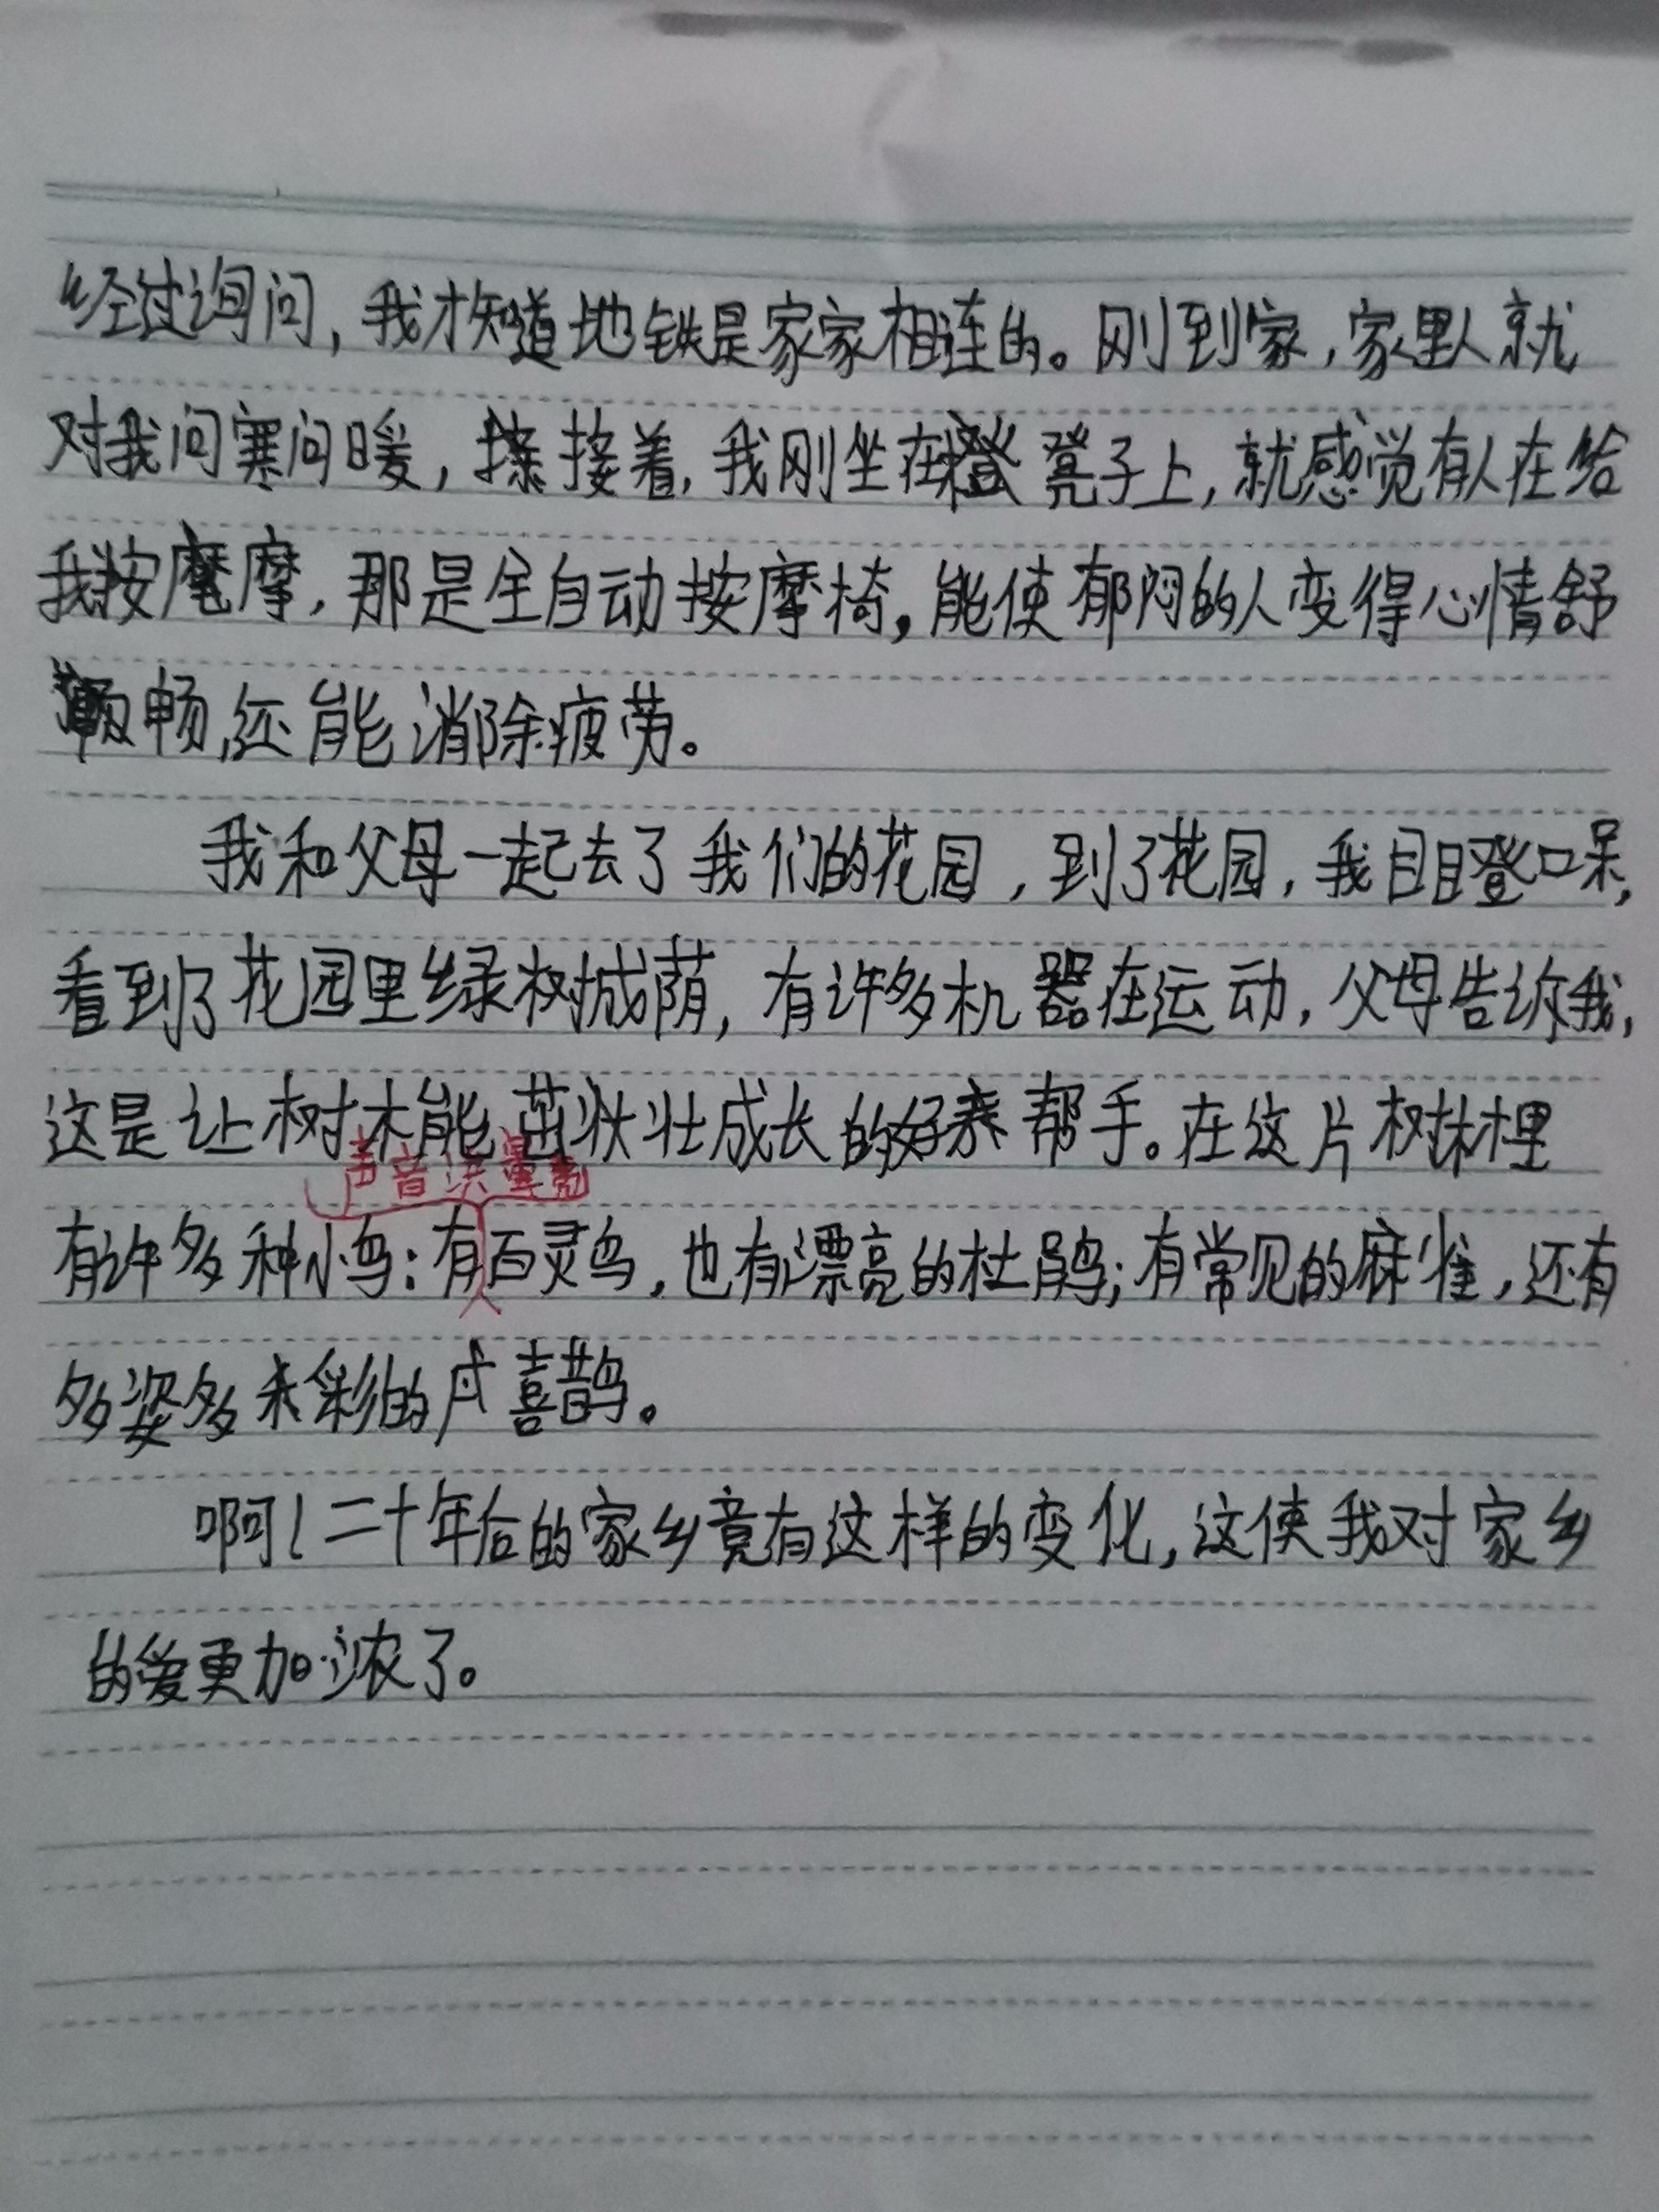 经过询问，我才知道地铁是家家相连的。刚到家，家里人就
对我问寒问暖，接着，我刚坐在凳子上，就感觉有人在给
我按摩，那是全自动按摩椅，能使郁闷的人变得心情舒
畅，还能消除疲劳。
我和父母一起去了我们的花园，到了花园，我目瞪口呆，
看到了花园里绿树成荫，有许多机器在运动，父母告诉我，
这是让树木能茁壮成长的好帮手。在这片树林里
声音洪亮
有许多种小鸟：有百灵鸟，也有漂亮的杜鹃；有常见的麻雀，还有
多姿多彩的喜鹊。
啊！二十年后的家乡竟有这样的变化，这使我对家乡
的爱更加浓了。